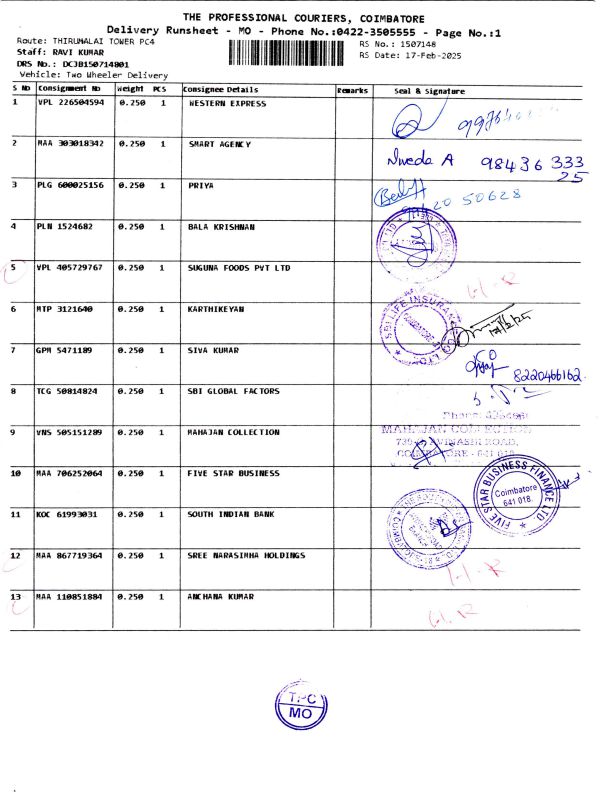 THE PROFESSIONAL COURIERS, COIMBATORE
Delivery Runsheet - MO - Phone No.:0422-3505555 - Page No.:1
Route: THIRUMALAI TOWER PC4
RS No.: 1507148
Staff: RAVI KUMAR
RS Date: 17-Feb-2025
DRS No.: DCJB150714801
Vehicle: Two Wheeler Delivery
S No Consignment No Weight PCS Consignee Details Remarks Seal & Signature
1 VPL 226504594 0.250 1 WESTERN EXPRESS
2 MAA 303018342 0.250 1 SMART AGENCY Niveda A 98436 333
25
3 PLG 600025156 0.250 1 PRIYA
20 50628
4 PLN 1524682 0.250 1 BALA KRISHNAN
5 VPL 405729767 0.250 1 SUGUNA FOODS PVT LTD
6 MTP 3121640 0.250 1 KARTHIKEYAN SBI LIFE INSURANCE CO LTD
7 GPM 5471189 0.250 1 SIVA KUMAR 8220466162
8 TCG 50814824 0.250 1 SBI GLOBAL FACTORS
9 VNS 505151289 0.250 1 MAHAJAN COLLECTION MAHAJAN COLLECTION
AVINASHI ROAD,
COIMBATORE - 641 018
10 MAA 706252064 0.250 1 FIVE STAR BUSINESS FIVE STAR BUSINESS FINANCE LTD
Coimbatore
641 018.
11 KOC 61993031 0.250 1 SOUTH INDIAN BANK
12 MAA 867719364 0.250 1 SREE NARASIMHA HOLDINGS
13 MAA 110851884 0.250 1 ANCHANA KUMAR
TPC
MO